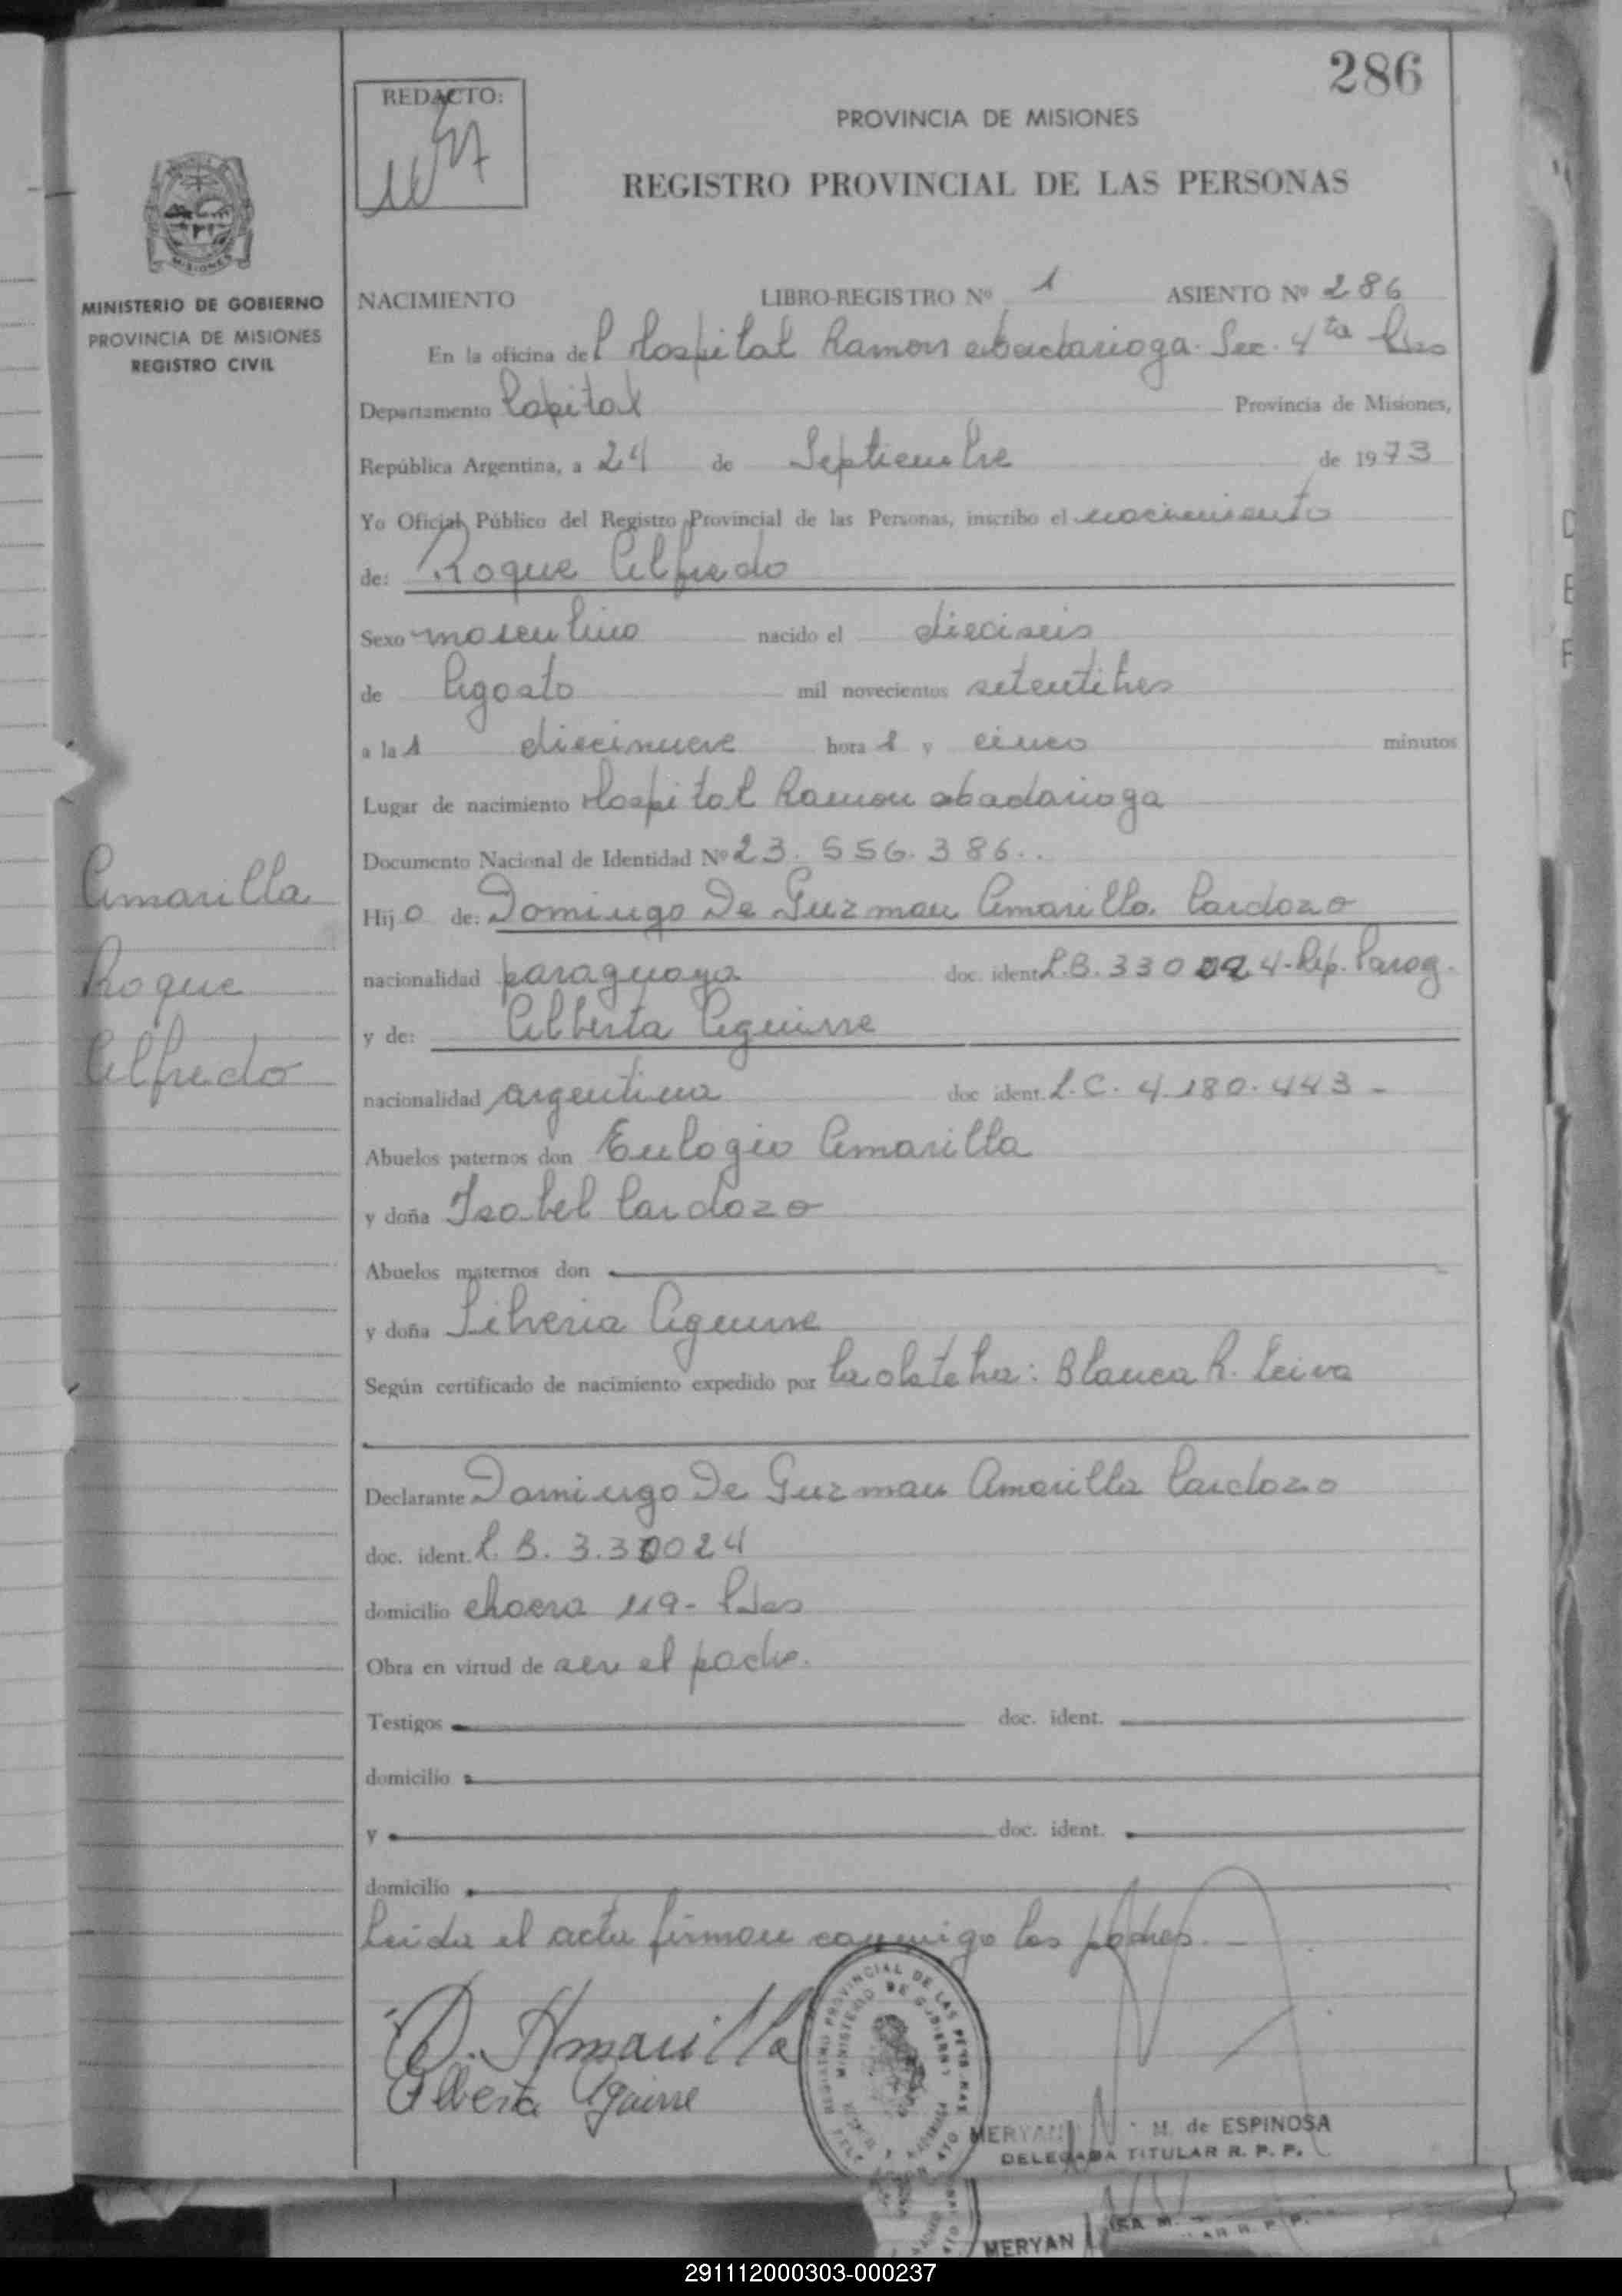 286
REDACTO:
PROVINCIA DE MISIONES
REGISTRO PROVINCIAL DE LAS PERSONAS
MISIONES
MINISTERIO DE GOBIERNO
PROVINCIA DE MISIONES
REGISTRO CIVIL
NACIMIENTO LIBRO-REGISTRO Nº 1 ASIENTO Nº 286
En la oficina del Hospital Ramon abadarioga. Sec. 4ta Pdas
Departamento Capital Provincia de Misiones,
República Argentina, a 24 de Septiembre de 1973
Yo Oficial Público del Registro Provincial de las Personas, inscribo el nacimiento
de: Roque Alfredo
Sexo masculino nacido el dieciseis
de Agosto mil novecientos setentitres
a las diecinueve horas y cinco minutos
Lugar de nacimiento Hospital Ramon abadarioga
Documento Nacional de Identidad Nº 23.556.386..
Amarilla
Roque
Alfredo
Hijo de: Domingo De Guzman Amarilla Cardozo
nacionalidad paraguaya doc. ident. C.B. 330024-Rep. Parag.
y de: Alberta Aguirre
nacionalidad argentina doc ident. L.C. 4.180.443 -
Abuelos paternos don Eulogio Amarilla
y doña Isabel Cardozo
Abuelos maternos don
y doña Silveria Aguirre
Según certificado de nacimiento expedido por la obstetra: Blanca R. Leiva
Declarante Domingo De Guzman Amarilla Cardozo
doc. ident. C.B. 3.30024
domicilio chacra 119- Pdas
Obra en virtud de ser el padre.
Testigos doc. ident.
domicilio
y doc. ident.
domicilio
Leida el acta firman conmigo los padres. -
D. Amarilla
Alberta Aguirre
REGISTRO PROVINCIAL DE LAS PERSONAS
MINISTERIO DE GOBIERNO
MERYAN M. de ESPINOSA
DELEGADA TITULAR R. P. P.
MERYAN
291112000303-000237